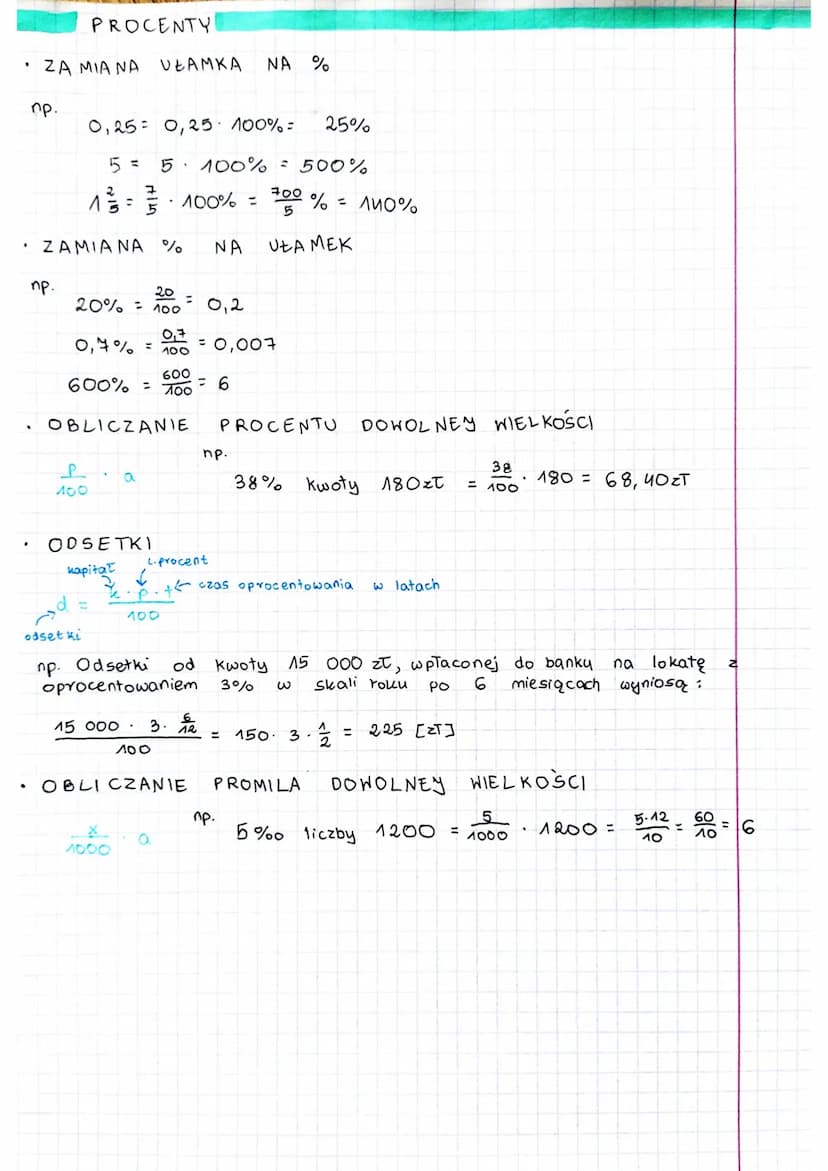 PROCENTY
• ZAMIANA UŁAMKA NA %
np.
0,25 = 0,25 · 100% = 25%
5 = 5 · 100% = 500%
1 2/5 = 7/5 · 100% = 700/5 % = 140%
• ZAMIANA % NA UŁAMEK
np.
20% = 20/100 = 0,2
0,7% = 0,7/100 = 0,007
600% = 600/100 = 6
• OBLICZANIE PROCENTU DOWOLNEJ WIELKOŚCI
np.
p/100 · a
38% kwoty 180zł = 38/100 · 180 = 68,40zł
• ODSETKI
kapitał l.procent
d = k · p · t/100 ← czas oprocentowania w latach
odsetki
np. Odsetki od kwoty 15 000 zł, wpłaconej do banku na lokatę z
oprocentowaniem 3% w skali roku po 6 miesiącach wyniosą:
15 000 · 3 · 6/12 / 100 = 150 · 3 · 1/2 = 225 [zł]
• OBLICZANIE PROMILA DOWOLNEJ WIELKOŚCI
np.
x/1000 · a
5‰ liczby 1200 = 5/1000 · 1200 = 5·12/10 = 60/10 = 6